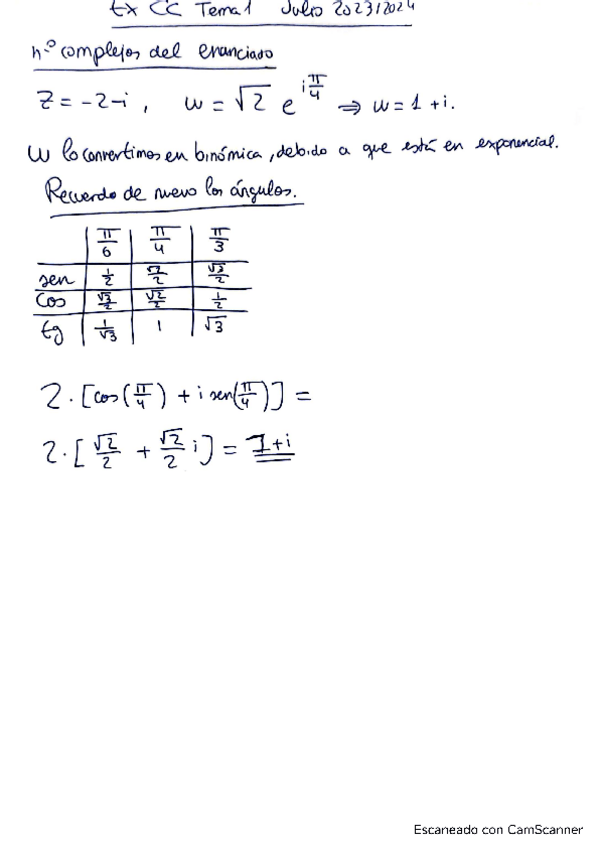 Ex CC Tema 1 Julio 2023/2024
nº complejos del enunciado
Z = -2-i, w = √2 e^(i π/4) ⇒ w = 1 + i.
W lo convertimos en binómica, debido a que está en exponencial.
Recuerdo de nuevo los ángulos.
π/6 π/4 π/3
sen 1/2 √2/2 √3/2
cos √3/2 √2/2 1/2
tg 1/√3 1 √3
2 · [cos(π/4) + i sen(π/4)] =
2 · [√2/2 + √2/2 i] = 1+i
Escaneado con CamScanner